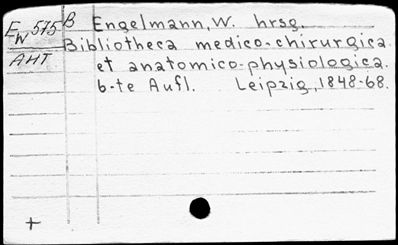 EW575 B Engelmann, W. hrsg.
Bibliotheca medico-chirurgica
AHT et anatomico-physiologica.
6-te Aufl. Leipzig, 1848-68.
+